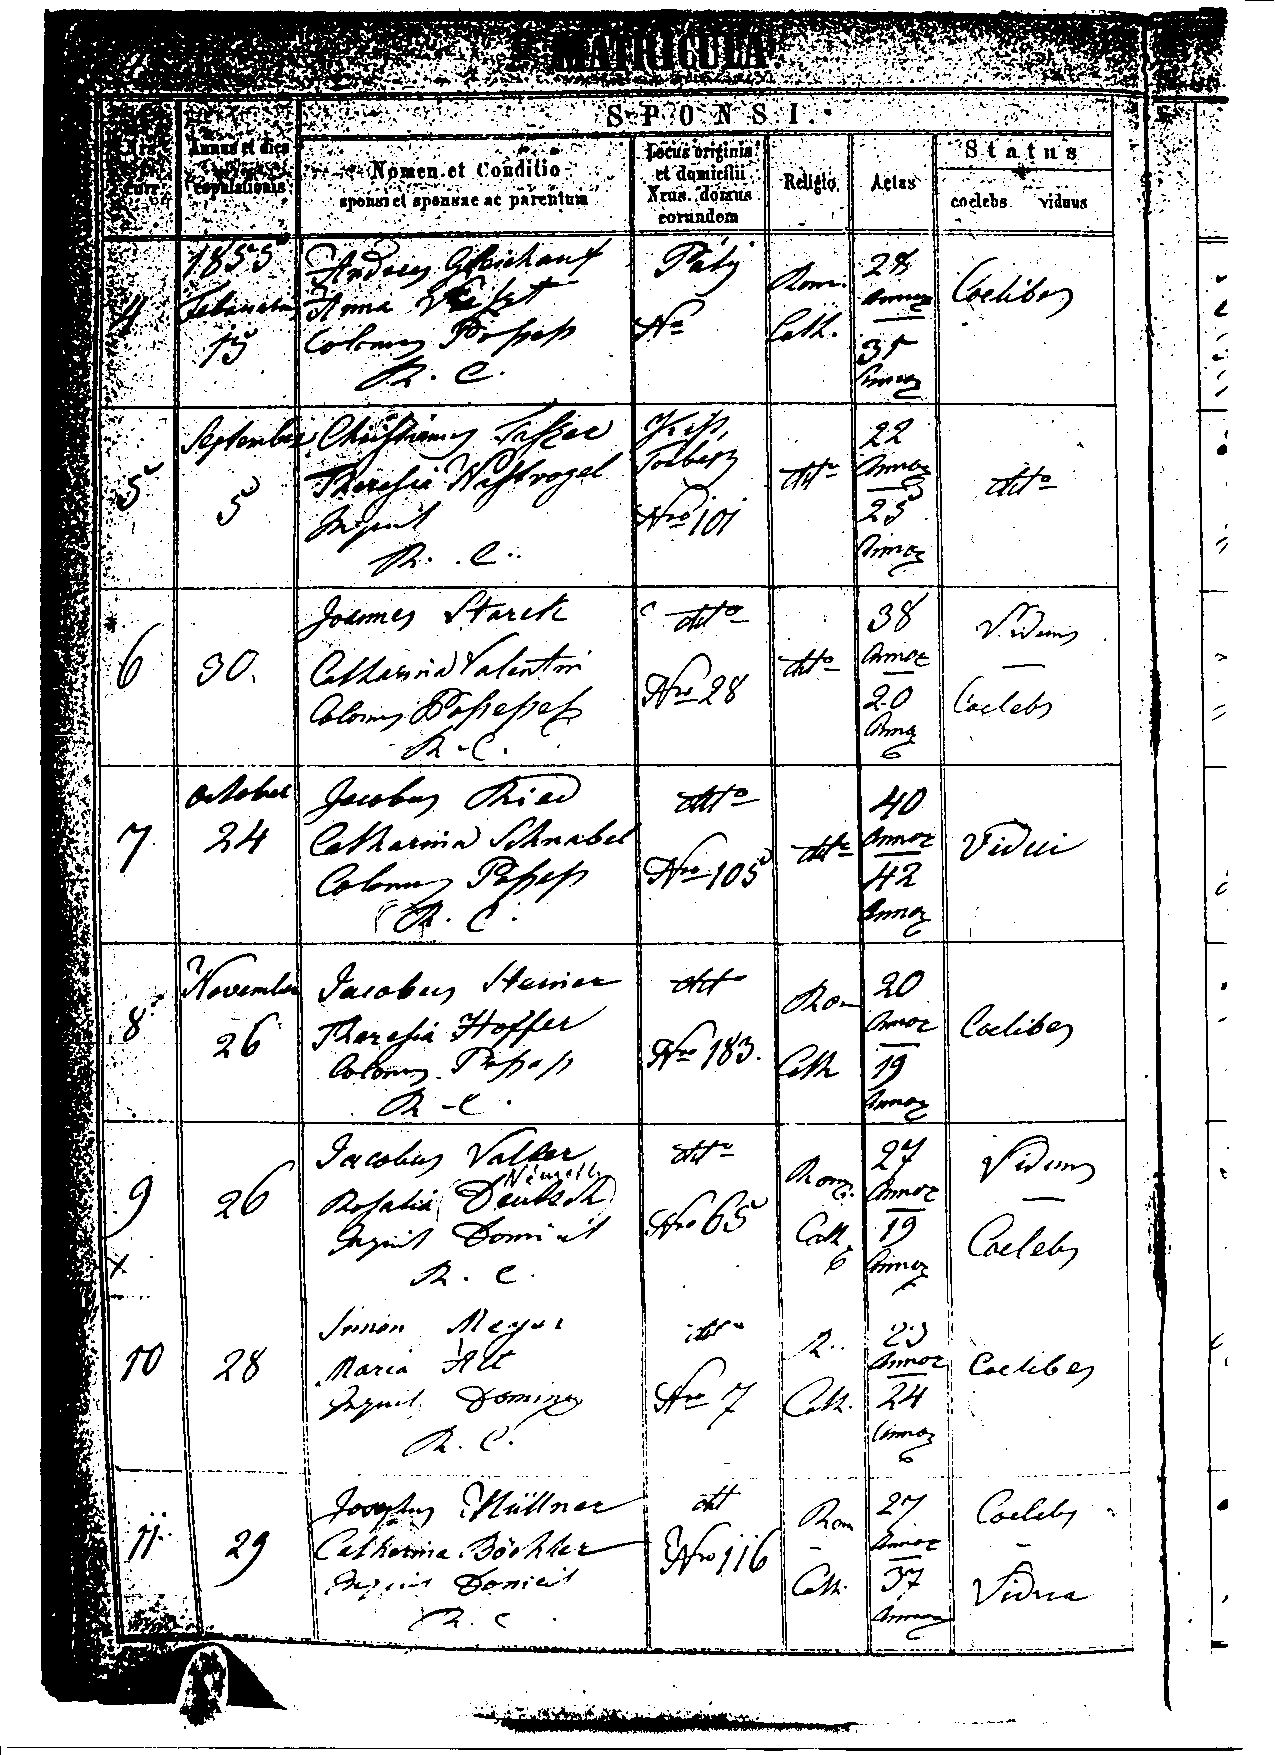 MATRICULA
SPONSI.
Annus et dies copulationis
Nomen et Conditio
sponsi et sponsae ac parentum
Locus originis
et domicilii
Nrus. domus
eorundem
Religio
Aetas
Status
coelebs viduus
4
1855
Februarius
15
Andreas
Anna
Colonus
R. C.
Páty
Nro
Rom.
Cath.
28
Annor
35
Annor
Coelibes
5
September
5
Christianus
Theresia
Inquil
R. C.
Kis
Torbágy
Nro 101
dtto
22
Annor
25
Annor
dtto
6
30.
Joannes Starck
Catharina Valentin
Colonus
R. C.
dtto
Nro 28
dtto
38
Annor
20
Annor
Viduus
Coelebs
7
October
24
Jacobus Ried
Catharina Schnabel
Colonus
R. C.
dtto
Nro 105
dtto
40
Annor
42
Annor
Vidui
8
November
26
Jacobus Steiner
Theresia Hoffer
Colonus
R. C.
dtto
Nro 183.
Rom
Cath
20
Annor
19
Annor
Coelibes
9
x
26
Jacobus
Németh
Rosalia Deutsch
Inquil Domicil
R. C.
dtto
Nro 65
Rom.
Cath.
27
Annor
19
Annor
Viduus
Coelebs
10
28
Simon Meyer
Maria Alt
Inquil.
R. C.
dtto
Nro 7
R.
Cath.
23
Annor
24
Annor
Coelibes
11
29
Josephus Müllner
Catharina Böchler
Inquil Domicil
R. C
dtt
Nro 116
Rom
Cath.
27
Annor
37
Annor
Coelebs
Vidua